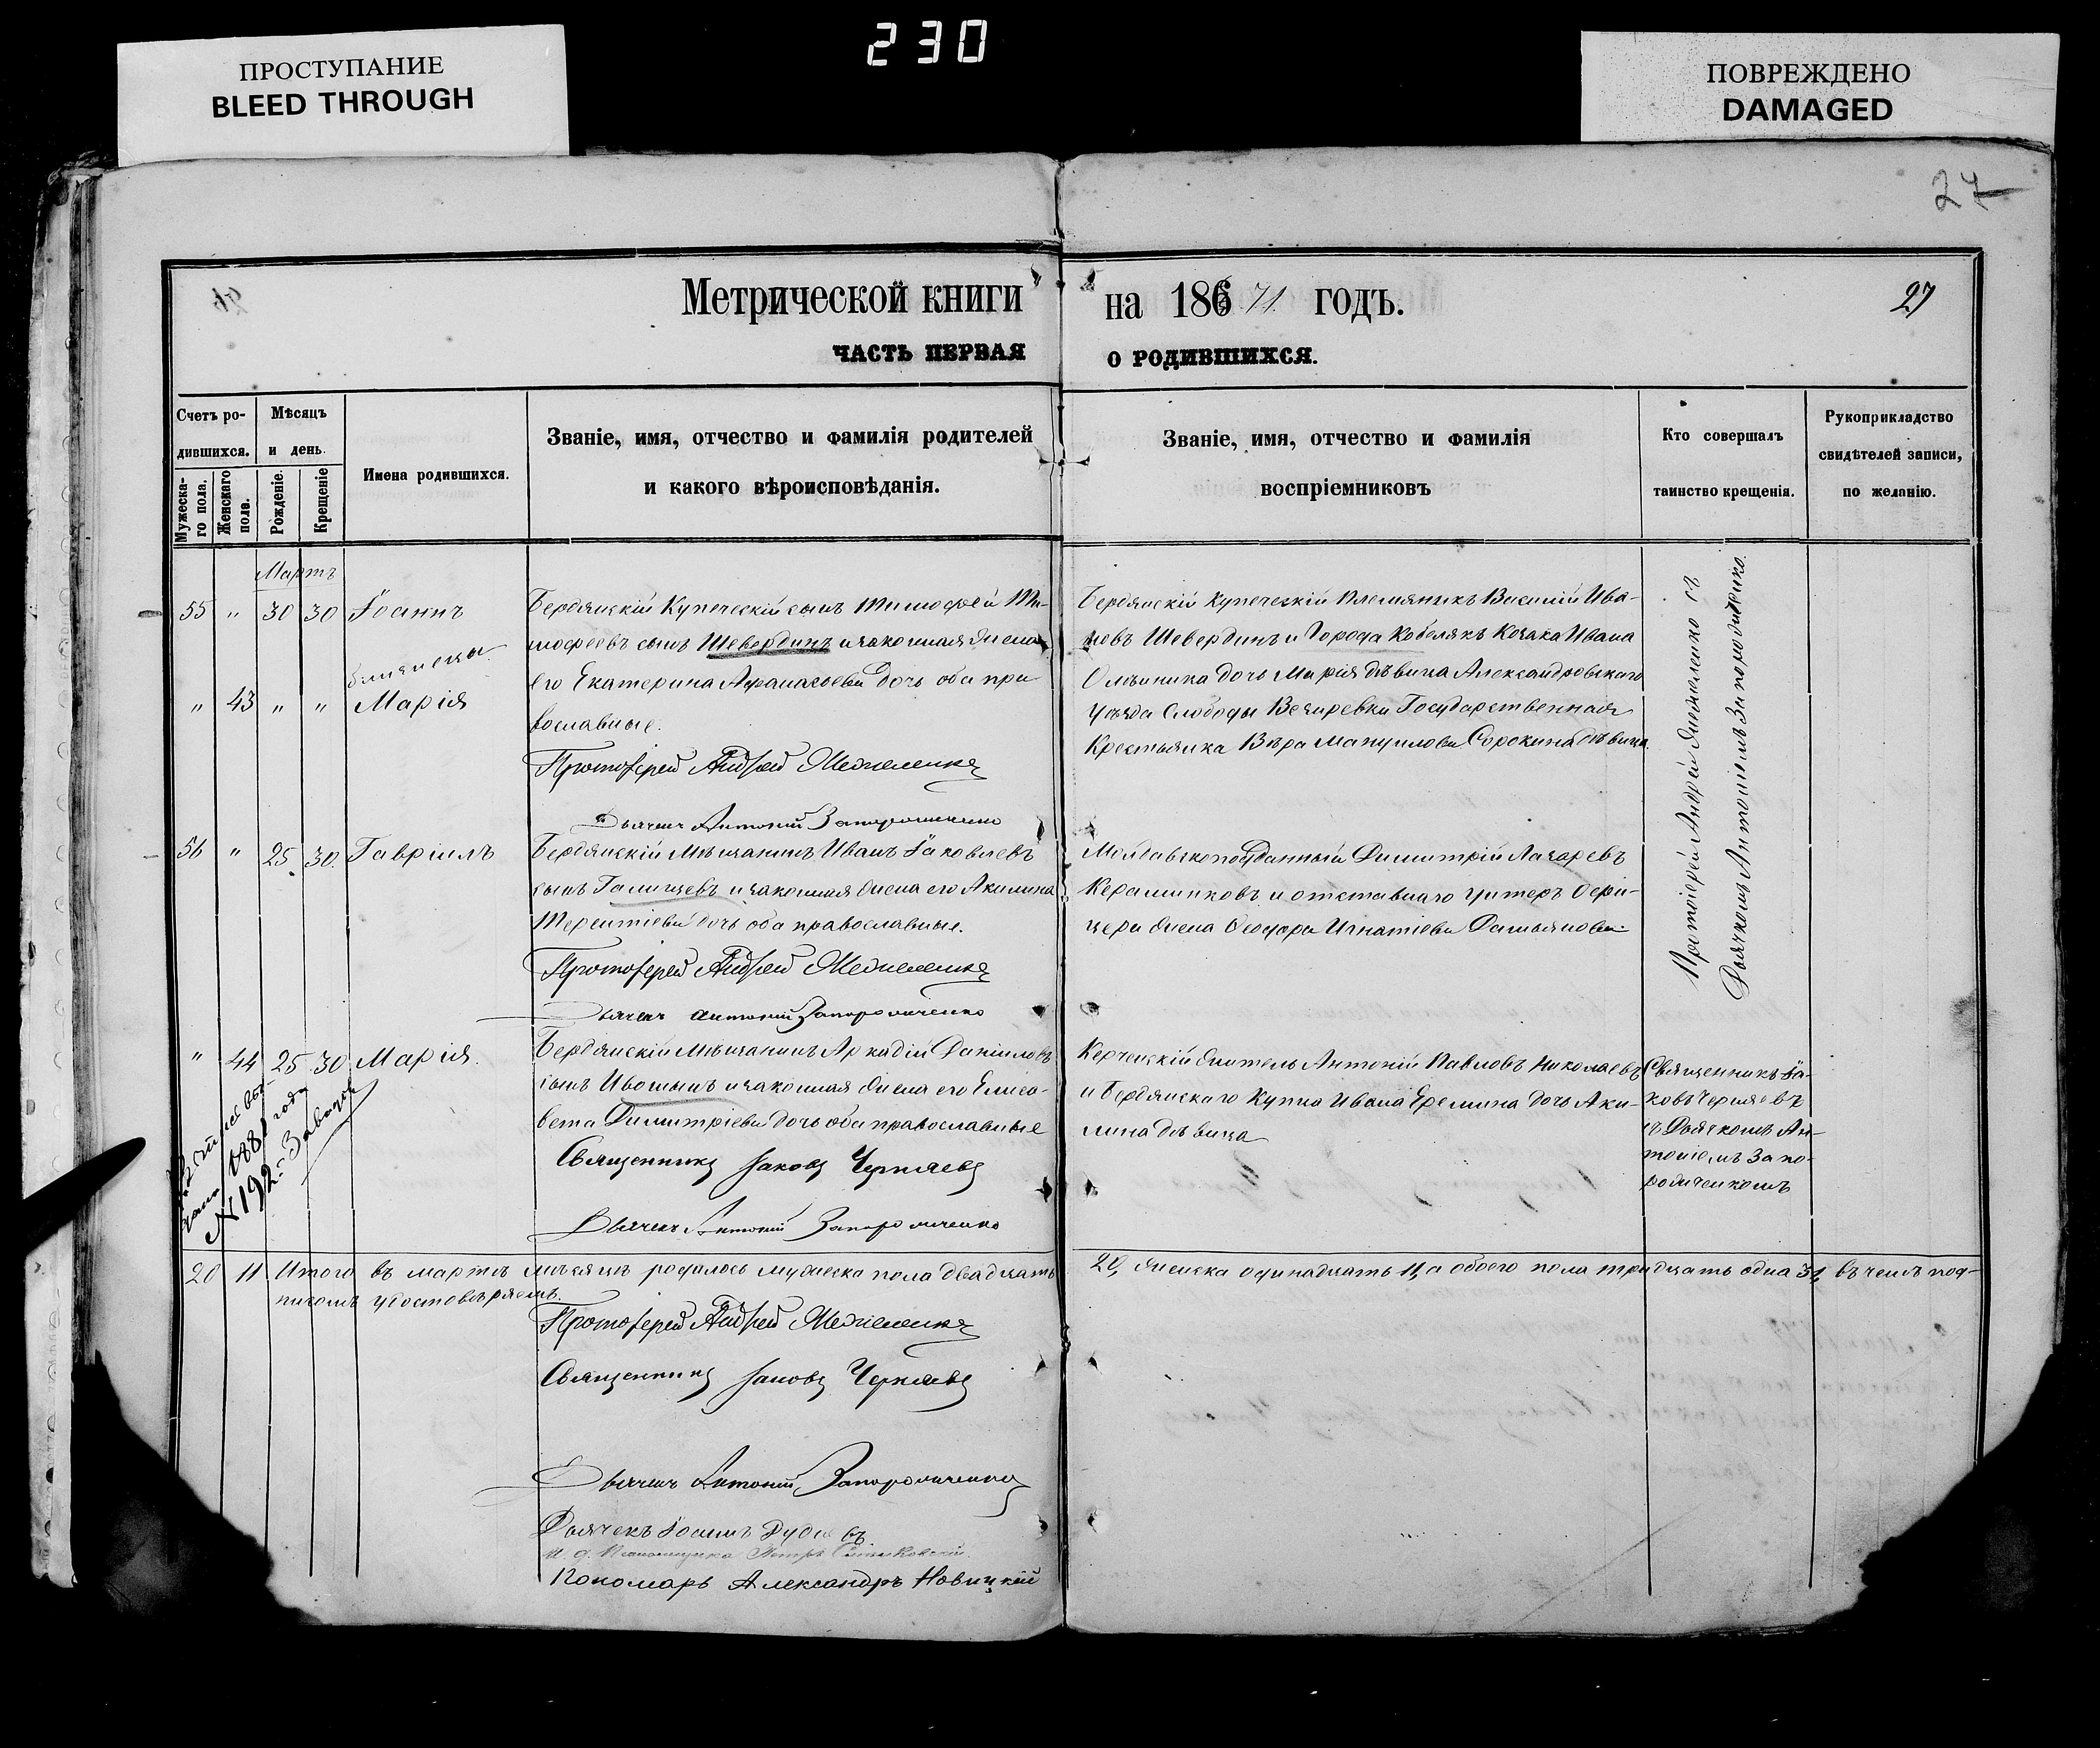 230
ПРОСТУПАНИЕ
BLEED THROUGH
ПОВРЕЖДЕНО
DAMAGED
27
Метрической книги на 1871 годъ.
27
ЧАСТЬ ПЕРВАЯ О РОДИВШИХСЯ.
Счетъ родившихся.
Мужескаго пола.
Женскаго пола.
Мѣсяцъ и день.
Рожденіе.
Крещеніе
Имена родившихся.
Званіе, имя, отчество и фамилія родителей
и какого вѣроисповѣданія.
Званіе, имя, отчество и фамилія
воспріемниковъ
Кто совершалъ
таинство крещенія.
Рукоприкладство
свидѣтелей записи,
по желанію.
Мартъ
55 " 30 30 Іоаннъ
близнецы
" 43 " " Марія
Бердянскій Купеческій сынъ Тимофей Ти-
мофеевъ сынъ Шевердинъ и законная жена
его Екатерина Афанасьева дочь оба пра-
вославные.
Протоіерей Андрей
Дьячекъ Антоній Запорожченко
Бердянскій Купеческій Племянникъ Василій Ива-
новъ Шевердинъ и Города Кобелякъ Козака Ивана
дочь Марія дѣвица Александровскаго
Уѣзда Слободы Государственная
Крестьянка Вѣра Мануилова Сорокина дѣвица.
Протоіерей Андрей съ
Дьячкомъ Антоніемъ Запорожченко.
56 " 25 30. Гавріилъ
Бердянскій Мѣщанинъ Иванъ Яковлевъ
сынъ Галищевъ и законная жена его Акилина
Терентіева дочь оба православные.
Протоіерей Андрей
Дьячекъ Антоній Запорожченко
Молдавскоподданный Димитрій Лазаревъ
и отставнаго унтеръ Офи-
цера жена Ѳеодора Игнатіева Дамьянова
" 44 25 30 Марія.
Бердянскій Мѣщанинъ Аркадій Даніиловъ
сынъ Ивошынъ и законная жена его Елиса-
вета Димитріева дочь оба православные
Священникъ Іаковъ Черняевъ
Дьячекъ Антоній Запорожченко
Керченскій житель Антоній Павловъ Николаевъ
и Бердянскаго Купца Ивана Еремина дочь Аки-
лина дѣвица
Священникъ Іа-
ковъ Черняевъ
съ Дьячкомъ Ан-
тоніемъ Запо-
рожченкомъ
1881 года
N 192.
20 11 Итого въ мартѣ мѣсяцѣ родилось мужеска пола двадцать 20, женска одинадцать 11, а обоего пола тридцать одна 31, въ чемъ под-
писомъ удостовѣряемъ.
Протоіерей Андрей
Священникъ Іаковъ Черняевъ
Дьячекъ Антоній Запорожченко
Дьячекъ Іоаннъ
Пономарь Александръ Новицкій